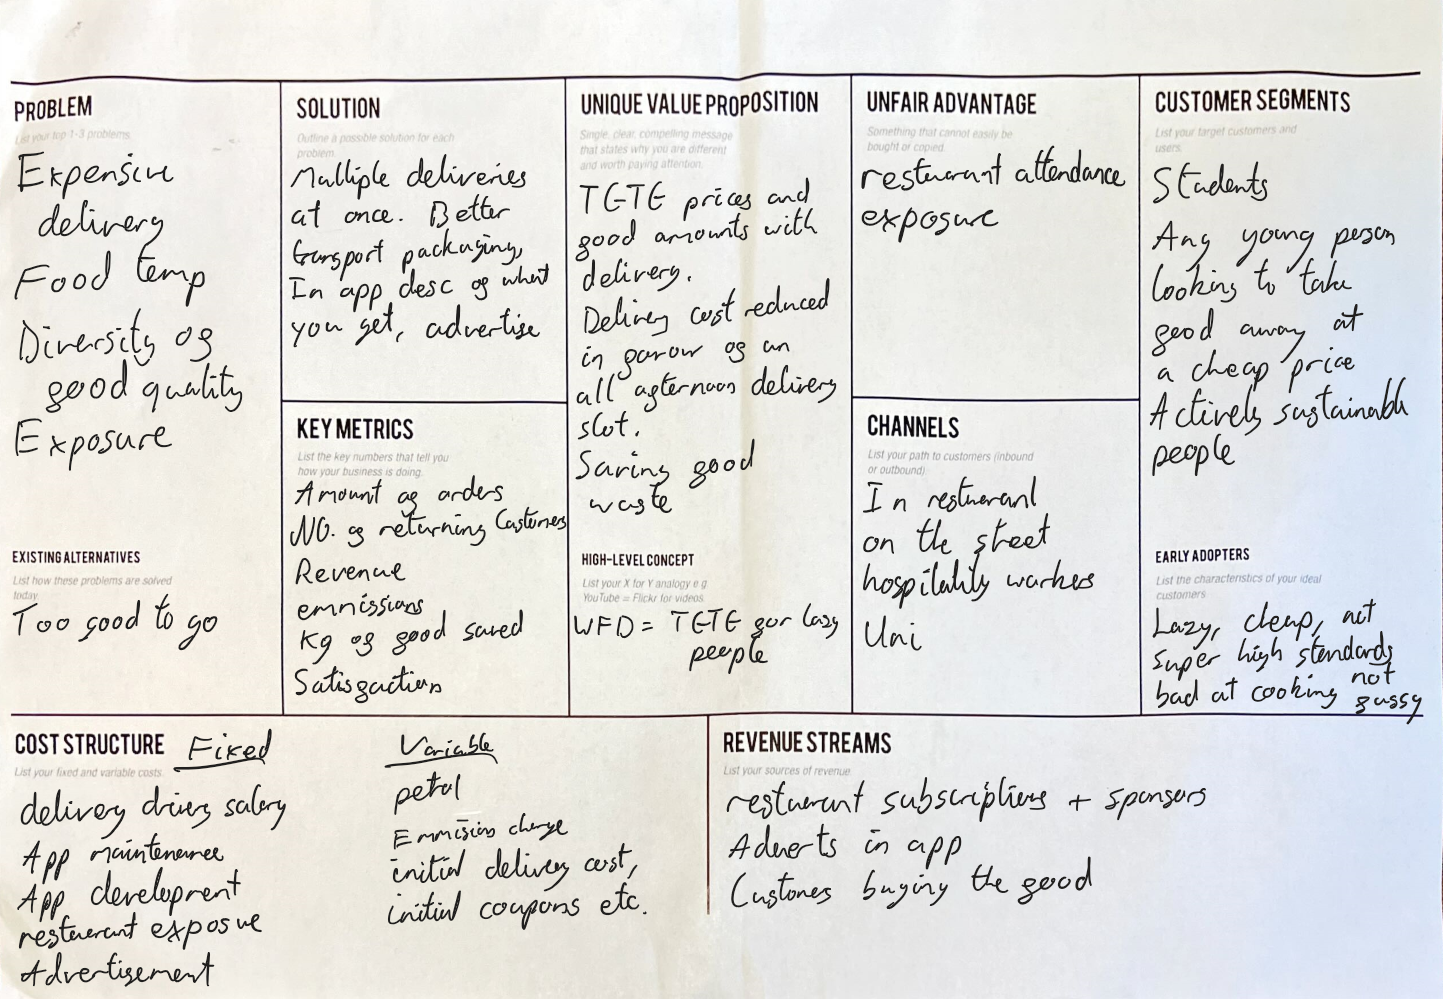 PROBLEM
List your top 1-3 problems.
Expensive
delivery
Food temp
Diversity of
food quality
Exposure
EXISTING ALTERNATIVES
List how these problems are solved
today.
Too good to go
SOLUTION
Outline a possible solution for each
problem.
Multiple deliveries
at once. Better
transport packaging,
In app desc of what
you get, advertise
KEY METRICS
List the key numbers that tell you
how your business is doing.
Amount of orders
NO. of returning Customers
Revenue
emnissions
Kg of food saved
Satisfaction
UNIQUE VALUE PROPOSITION
Single, clear, compelling message
that states why you are different
and worth paying attention.
TGTG prices and
food amounts with
delivery.
Delivery cost reduced
in favour of an
all afternoon delivery
slot.
Saving food
waste
HIGH-LEVEL CONCEPT
List your X for Y analogy e.g.
YouTube = Flickr for videos.
WFD = TGTG for lazy
people
UNFAIR ADVANTAGE
Something that cannot easily be
bought or copied.
resturant attendance
exposure
CHANNELS
List your path to customers (inbound
or outbound)
In resturant
on the street
hospitality workers
Uni
CUSTOMER SEGMENTS
List your target customers and
users.
Students
Any young person
looking to take
food away at
a cheap price
Actively sustainable
people
EARLY ADOPTERS
List the characteristics of your ideal
customers
Lazy, cheap, not
super high standards
bad at cooking not
fussy
COST STRUCTURE Fixed
List your fixed and variable costs.
delivery driver salary
App maintenance
App development
resturant exposure
Advertisement
Variable
petrol
Emmisions charge
initial delivery cost,
initial coupons etc.
REVENUE STREAMS
List your sources of revenue.
resturant subscriptions + sponsors
Adverts in app
Customers buying the food